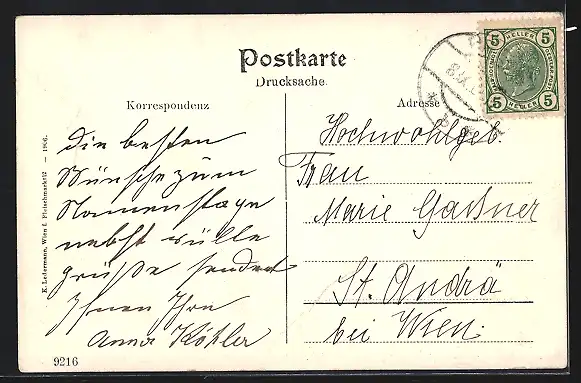 Postkarte
Drucksache.
Korrespondenz
Adresse
5 HELLER 5
5 HELLER 5
die besten
Wünsche zum
Namenstage
nebst
grüße sendet
Ihnen Ihre
Anna Köhler
Hochwohlgeb.
Frau
Marie Gaßner
St. Andrä
bei Wien.
K. Ledermann, Wien I. Fleischmarkt 12 — 1906.
9216